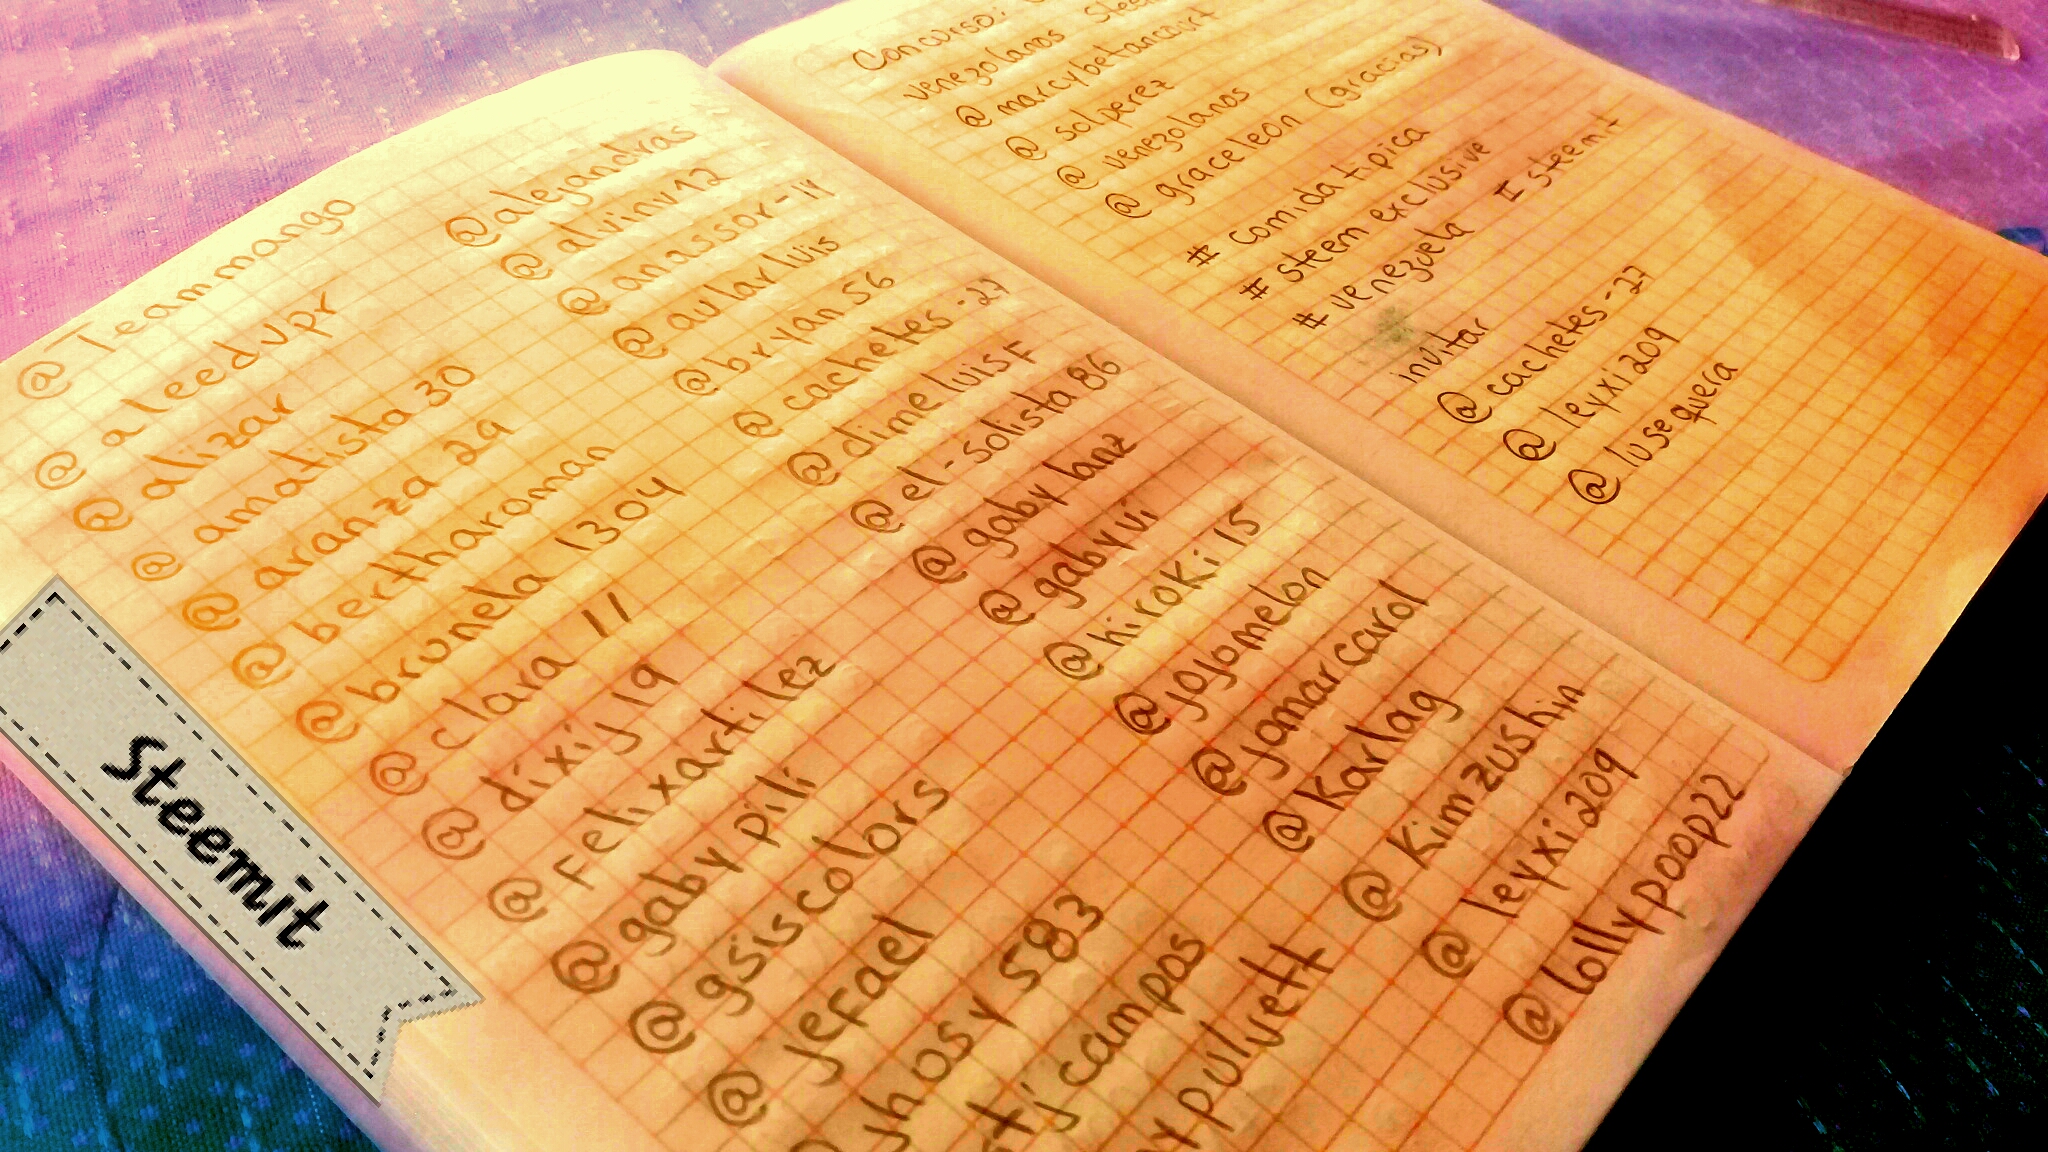 @Teammango
@aleedvpr
@alizar
@amatista30
@aranza29
@bertharoman
@brunela1304
@clara11
@dixij19
@Felixartilez
@gabypili
@gsiscolors
@jeFael
@jhosy583
campos
pulvett
@alejandras
@alvinv12
@anassor-11
@aularluis
@bryan56
@cachetes-27
@dimeluisF
@el-solista86
@gabylanz
@gabyvi
@hiroki15
@jojomelon
@jamarcarol
@Karlag
@Kimzushin
@leyxi209
@lollypoop22
Concurso:
venezolanos
@marcybetancourt
@solperez
@venezolanos
@graceleon (gracias)
#comida tipica
#steem exclusive
#venezuela #steemit
invitar
@cachetes-27
@leyxi209
@lusequera
Steemit